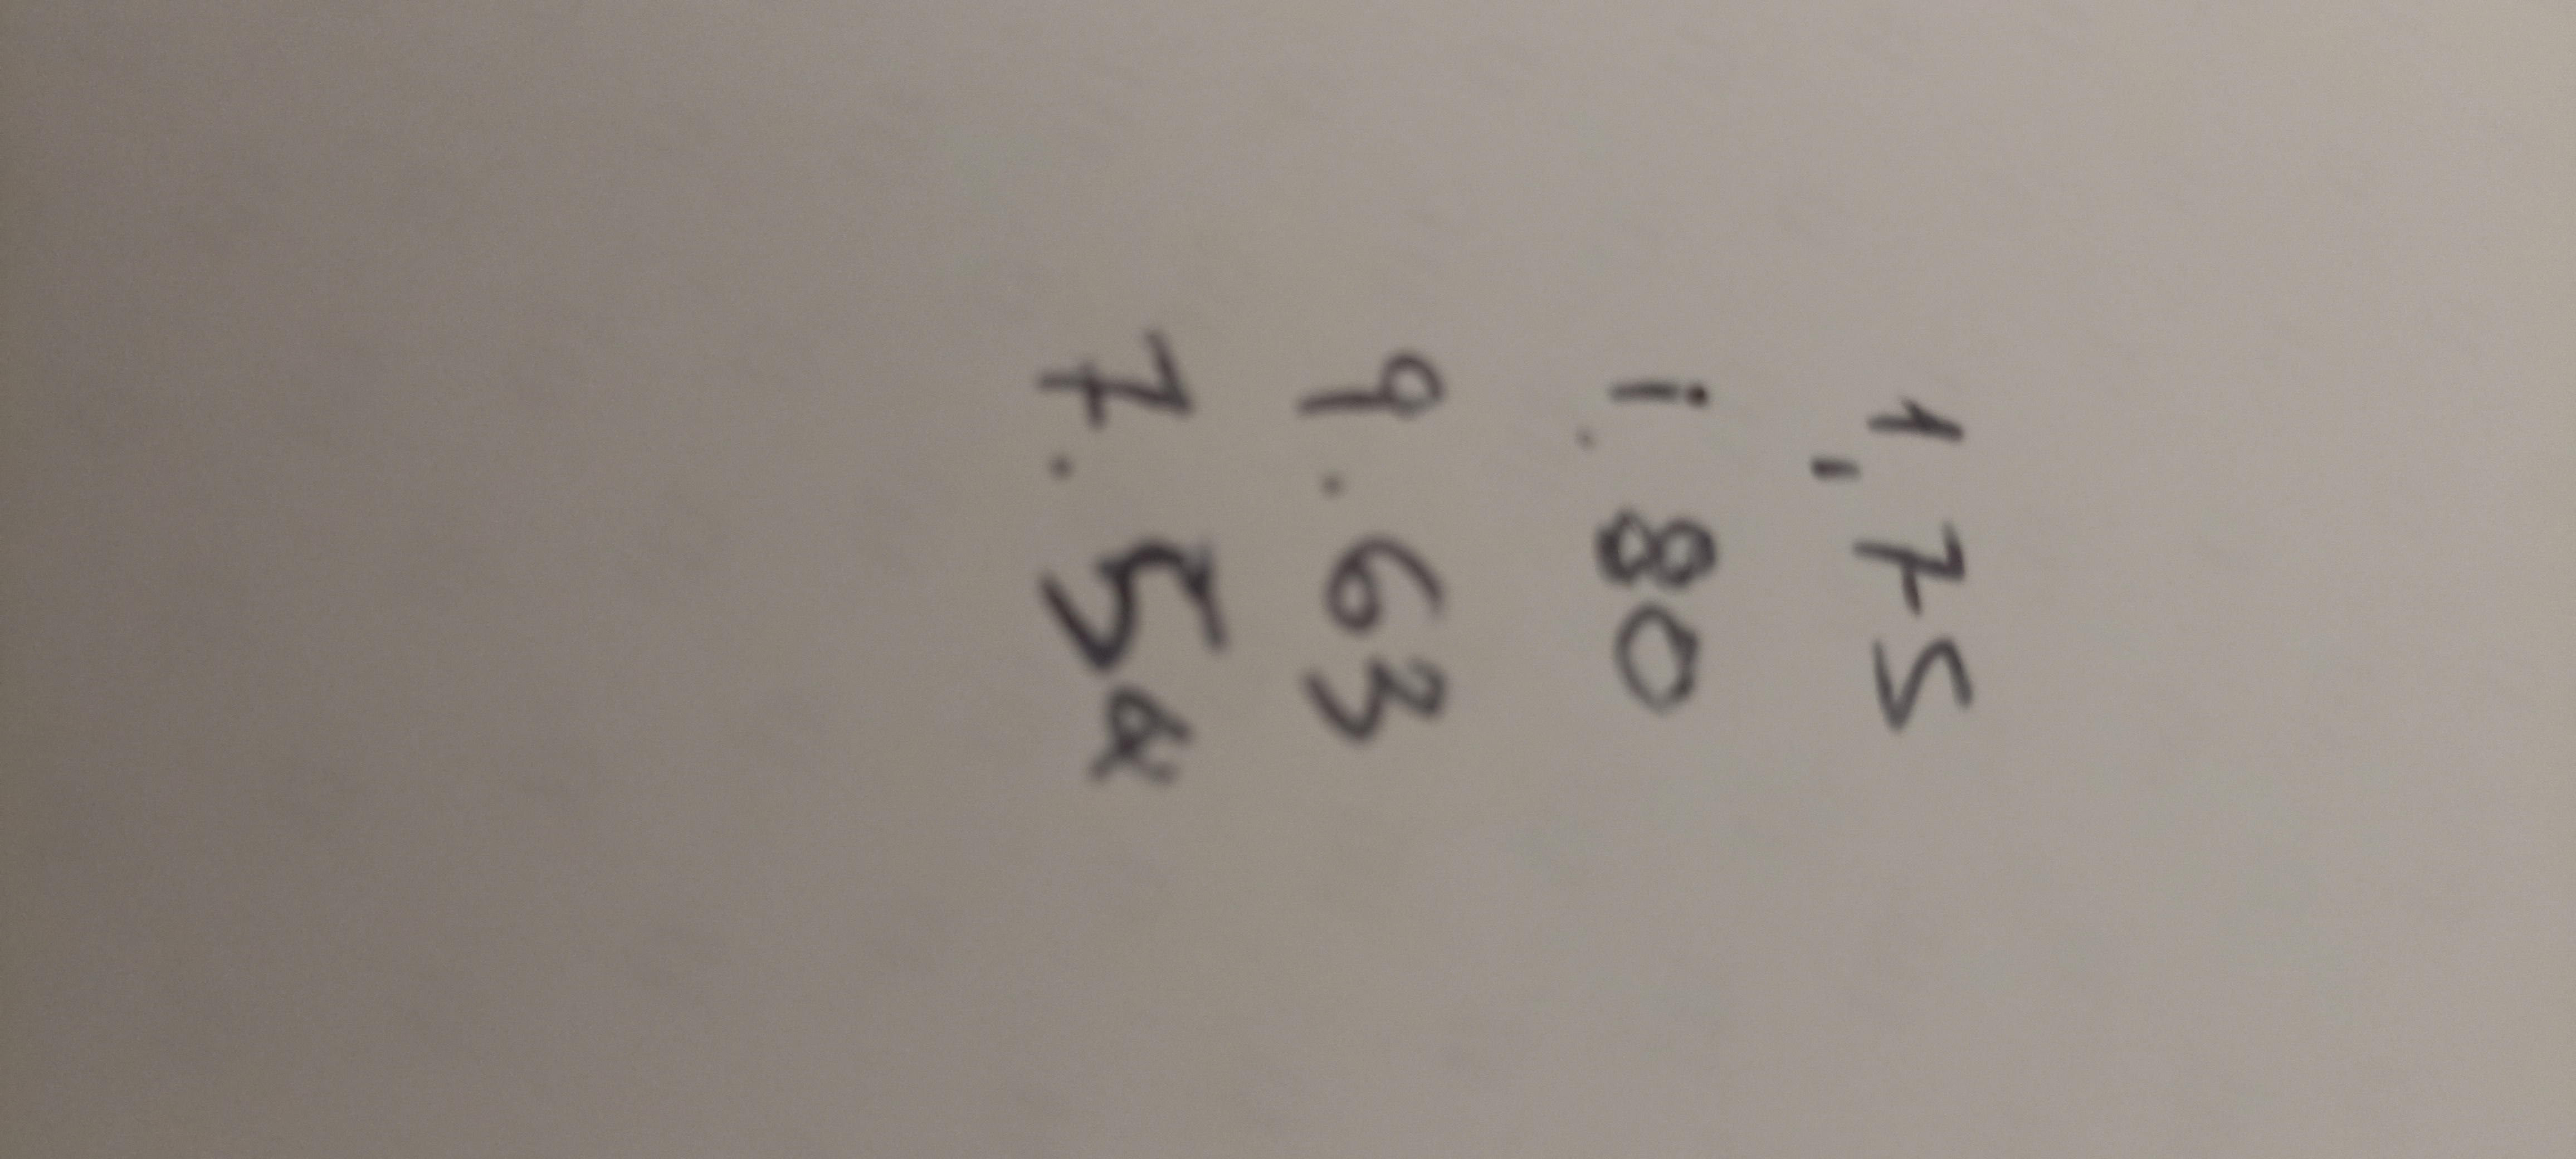 1,75
i.80
9.63
7.54